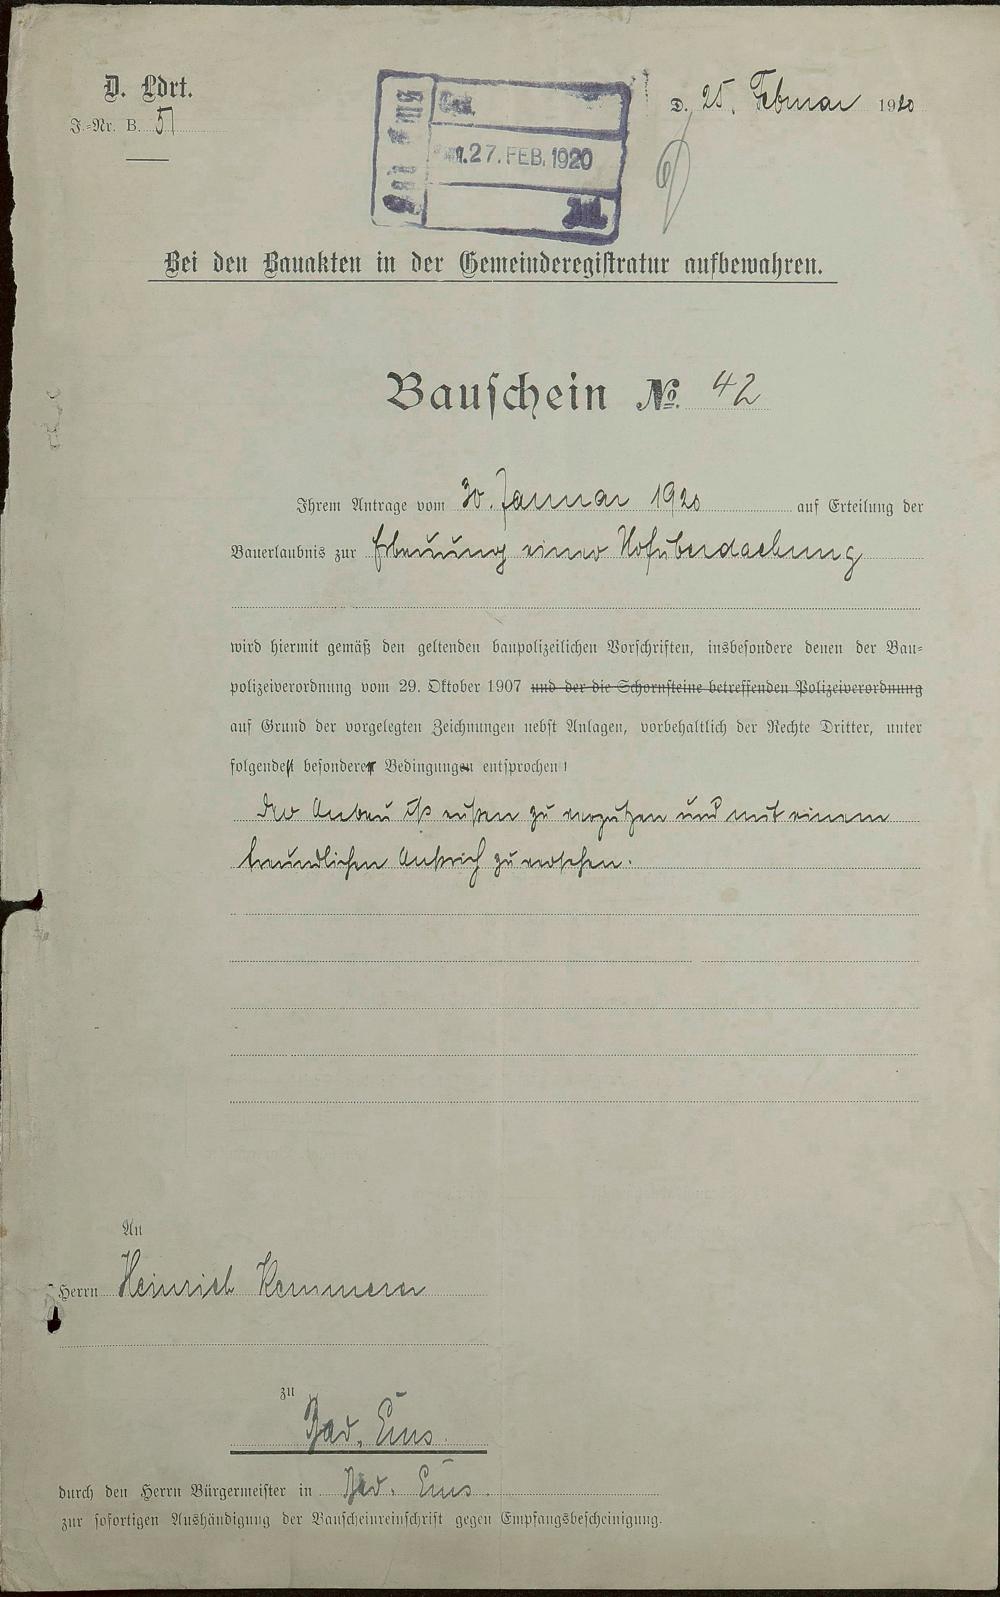 D. Ldrt.
J.-Nr. B. 51
27. FEB. 1920
D. 25. Februar 1920
Bei den Bauakten in der Gemeinderegistratur aufbewahren.
Bauschein No. 42
Ihrem Antrage vom 30. Januar 1920 auf Erteilung der
Bauerlaubnis zur Erbauung einer Hofüberdachung
wird hiermit gemäß den geltenden baupolizeilichen Vorschriften, insbesondere denen der Bau-
polizeiverordnung vom 29. Oktober 1907 und der die Schornsteine betreffenden Polizeiverordnung
auf Grund der vorgelegten Zeichnungen nebst Anlagen, vorbehaltlich der Rechte Dritter, unter
besonderer Bedingung entsprochen:
Der Anbau ist außen zu verputzen und mit einem
freundlichen Anstrich zu versehen.
An
Herrn Heinrich Kemmerer
zu
Bad Ems
durch den Herrn Bürgermeister in Bad Ems.
zur sofortigen Aushändigung der Bauscheinreinschrift gegen Empfangsbescheinigung.